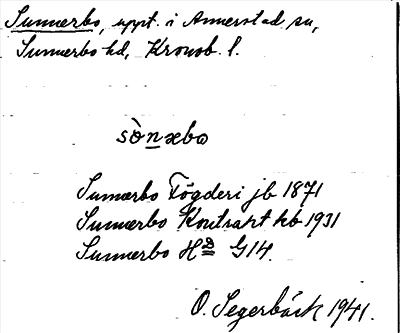 Sunnerbo, uppt. i Annerstad sn,
Sunnerbo hd, Kronob. l.
sò̀nxbω
Sunnerbo Fögderi jb 1871
Sunnerbo Kontrakt kb 1931
Sunnerbo Hd G14.
O. Segerbäck 1941.